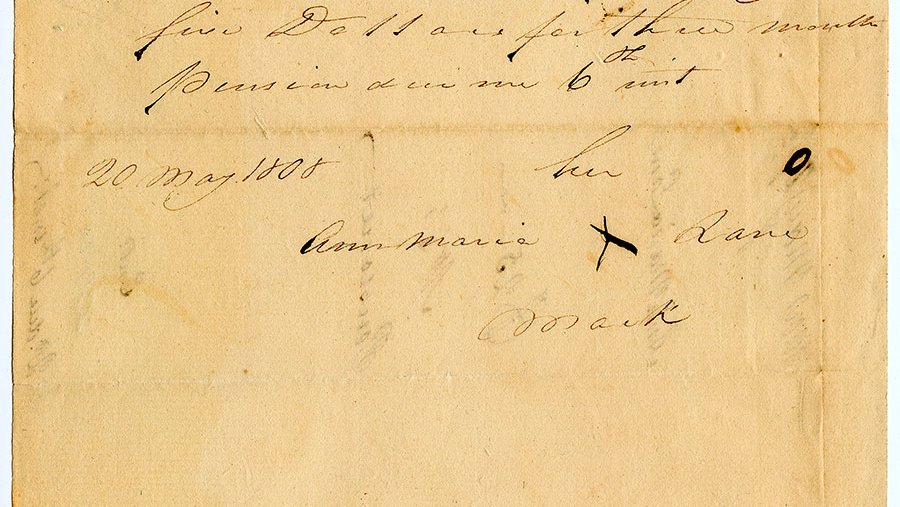 five Dollars for three months
Pension due me 6th inst
20 May 1808
her
Ann Maria X Lane
mark